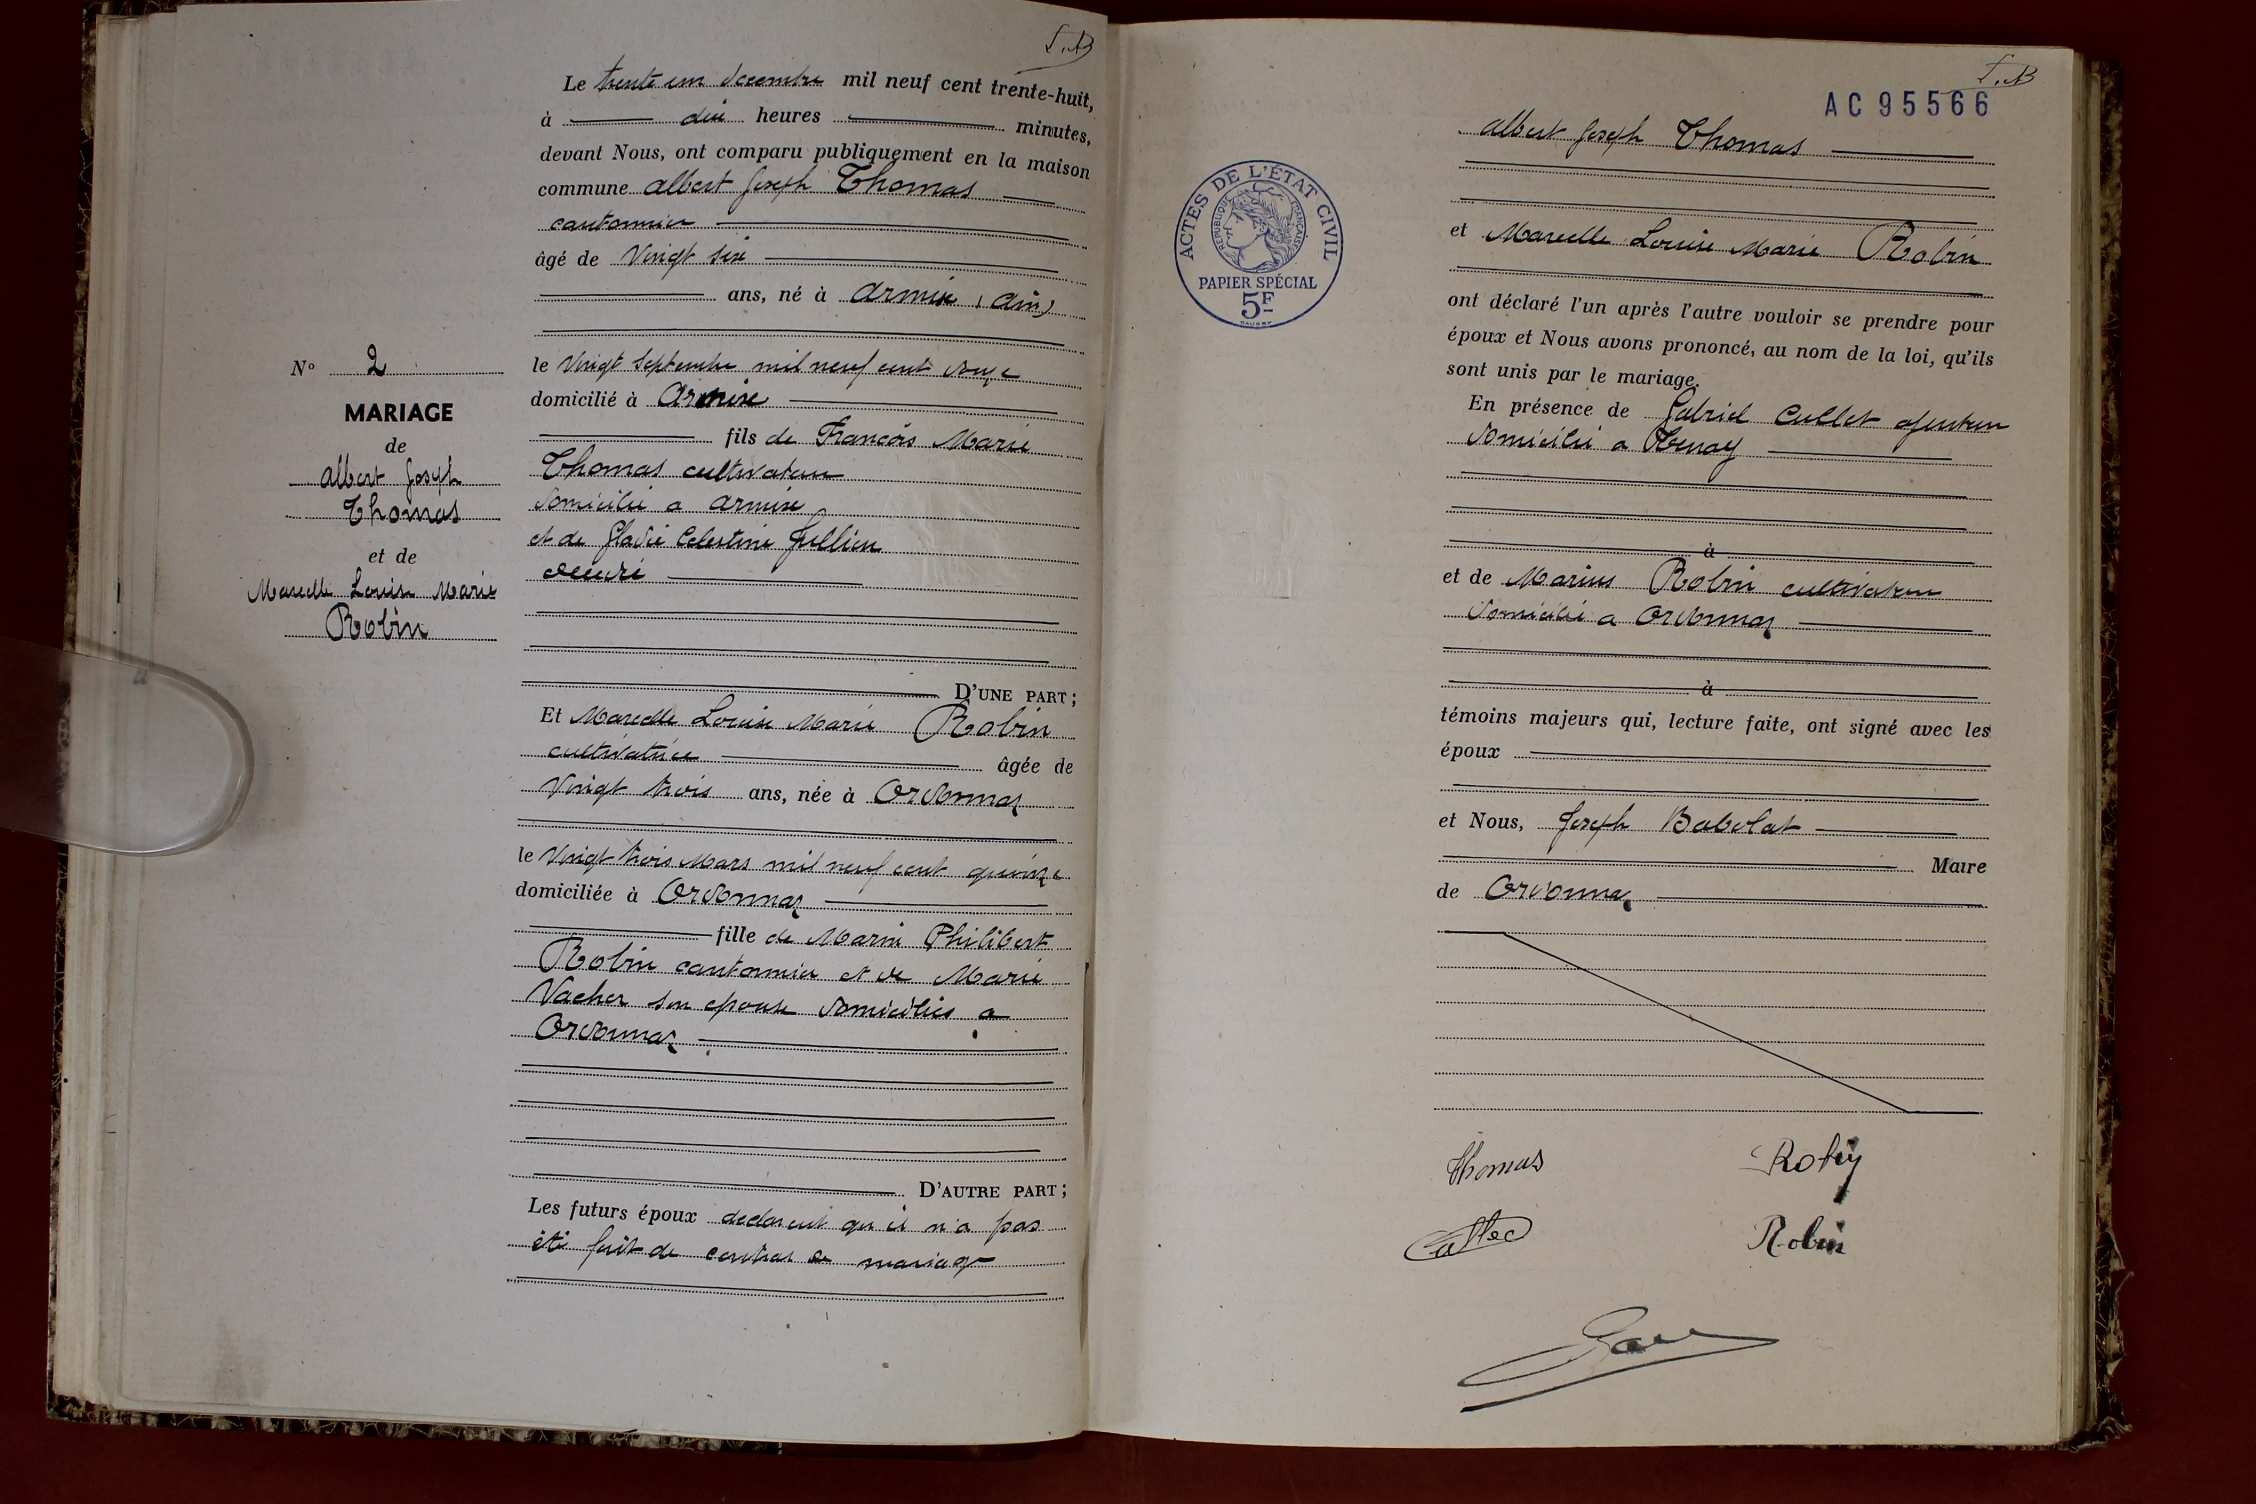 Le trente un decembre mil neuf cent trente-huit,
à dix heures minutes,
devant Nous, ont comparu publiquement en la maison
commune Albert Joseph Thomas
cantonnier
âgé de Vingt six
ans, né à Armix (Ain)
le Vingt Septembre mil neuf cent douze
domicilié à Armix
fils de François Marie
Thomas cultivateur
domicilié a Armix
et de Celestine Jullien
N° 2
MARIAGE
de
Albert Joseph
Thomas
et de
Marcelle Louise Marie
Robin
D'UNE PART ;
Et Marcelle Louise Marie Robin
cultivatrice âgée de
Vingt trois ans, née à Ordonnaz
le Vingt trois Mars mil neuf cent quinze
domiciliée à Ordonnaz
fille de Marin Philibert
Robin cantonnier et de Marie
Vacher son epouse domicilies a
Ordonnaz
D'AUTRE PART ;
Les futurs époux declarent qu il n'a pas
été fait de contrat de mariage
AC 95566
ACTES DE L'ÉTAT CIVIL
RÉPUBLIQUE FRANÇAISE
PAPIER SPÉCIAL
5F
Albert Joseph Thomas
et Marcelle Louise Marie Robin
ont déclaré l'un après l'autre vouloir se prendre pour
époux et Nous avons prononcé, au nom de la loi, qu'ils
sont unis par le mariage.
En présence de Gabriel Cullet ajusteur
domicilié a Tenay
à
et de Marius Robin cultivateur
domicilié a Ordonnaz
à
témoins majeurs qui, lecture faite, ont signé avec les
époux
et Nous, Joseph Babolat
Maire
de Ordonnaz
Thomas Robin
Robin